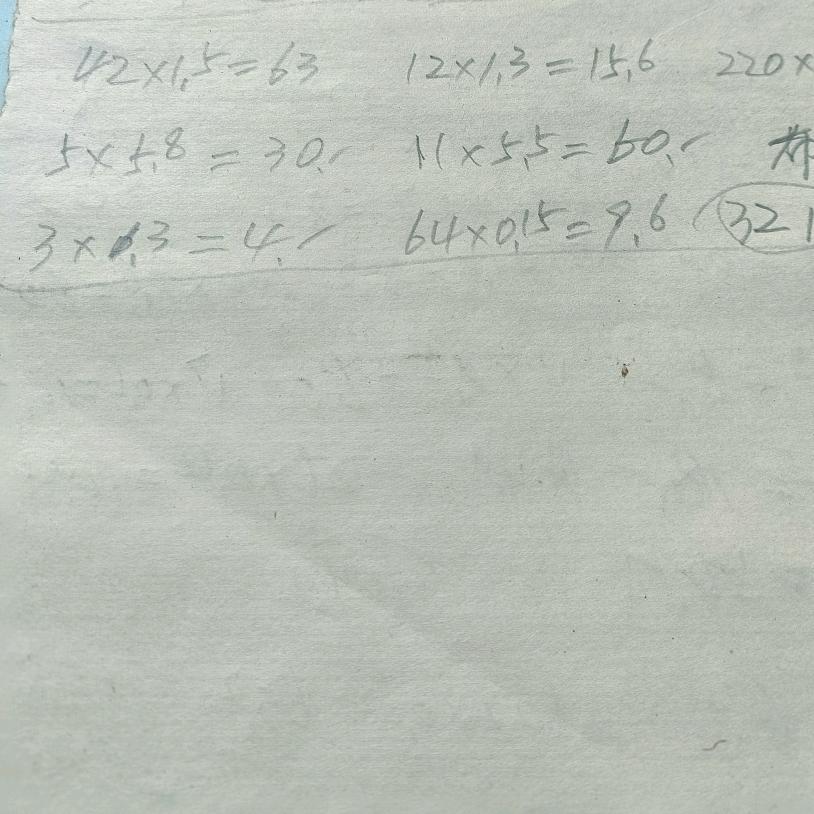 42×1.5=63 12×1.3=15.6 220×
5×5.8=30. 11×5.5=60.
3×1.3=4. 64×0.15=9.6 321